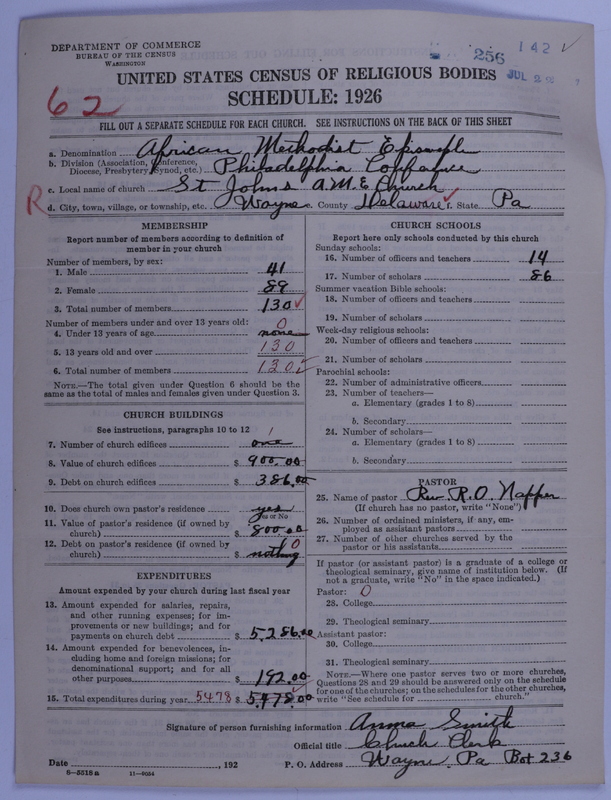 DEPARTMENT OF COMMERCE
BUREAU OF THE CENSUS
WASHINGTON
256
142 ✓
JUL 22
UNITED STATES CENSUS OF RELIGIOUS BODIES
SCHEDULE: 1926
62
FILL OUT A SEPARATE SCHEDULE FOR EACH CHURCH. SEE INSTRUCTIONS ON THE BACK OF THIS SHEET
a. Denomination African Methodist
b. Division (Association, Conference, Diocese, Presbytery, Synod, etc.) Philadelphia
c. Local name of church St Johns A.M.E Church
R
d. City, town, village, or township, etc. Wayne e. County Delaware ✓ f. State Pa
MEMBERSHIP
Report number of members according to definition of
member in your church
Number of members, by sex:
1. Male 41
2. Female 89
3. Total number of members 130 ✓
Number of members under and over 13 years old: 0
4. Under 13 years of age none
5. 13 years old and over 130
6. Total number of members 130 ✓
NOTE.—The total given under Question 6 should be the
same as the total of males and females given under Question 3.
CHURCH BUILDINGS
See instructions, paragraphs 10 to 12 1
7. Number of church edifices one
8. Value of church edifices $ 900.00
9. Debt on church edifices $ 386.00
10. Does church own pastor's residence yes
Yes or No
11. Value of pastor's residence (if owned by
church) $ 800.00
12. Debt on pastor's residence (if owned by 0
church) $ nothing
EXPENDITURES
Amount expended by your church during last fiscal year
13. Amount expended for salaries, repairs,
and other running expenses; for im-
provements or new buildings; and for
payments on church debt $ 5,286.00
14. Amount expended for benevolences, in-
cluding home and foreign missions; for
denominational support; and for all
other purposes $ 192.00
15. Total expenditures during year 5478 $ 5,478.00
CHURCH SCHOOLS
Report here only schools conducted by this church
Sunday schools:
16. Number of officers and teachers 14
17. Number of scholars 86
Summer vacation Bible schools:
18. Number of officers and teachers
19. Number of scholars
Week-day religious schools:
20. Number of officers and teachers
21. Number of scholars
Parochial schools:
22. Number of administrative officers
23. Number of teachers—
a. Elementary (grades 1 to 8)
b. Secondary
24. Number of scholars—
a. Elementary (grades 1 to 8)
b. Secondary
PASTOR
25. Name of pastor Rev. R.O. Napper
(If church has no pastor, write "None")
26. Number of ordained ministers, if any, em-
ployed as assistant pastors
27. Number of other churches served by the
pastor or his assistants
If pastor (or assistant pastor) is a graduate of a college or
theological seminary, give name of institution below. (If
not a graduate, write "No" in the space indicated.)
Pastor: 0
28. College
29. Theological seminary
Assistant pastor:
30. College
31. Theological seminary
NOTE.—Where one pastor serves two or more churches,
Questions 28 and 29 should be answered only on the schedule
for one of the churches; on the schedules for the other churches,
write "See schedule for church."
Signature of person furnishing information Anna Smith
Official title Church Clerk
Date , 192
P. O. Address Wayne. Pa Bot 236
8—5518a 11—9054